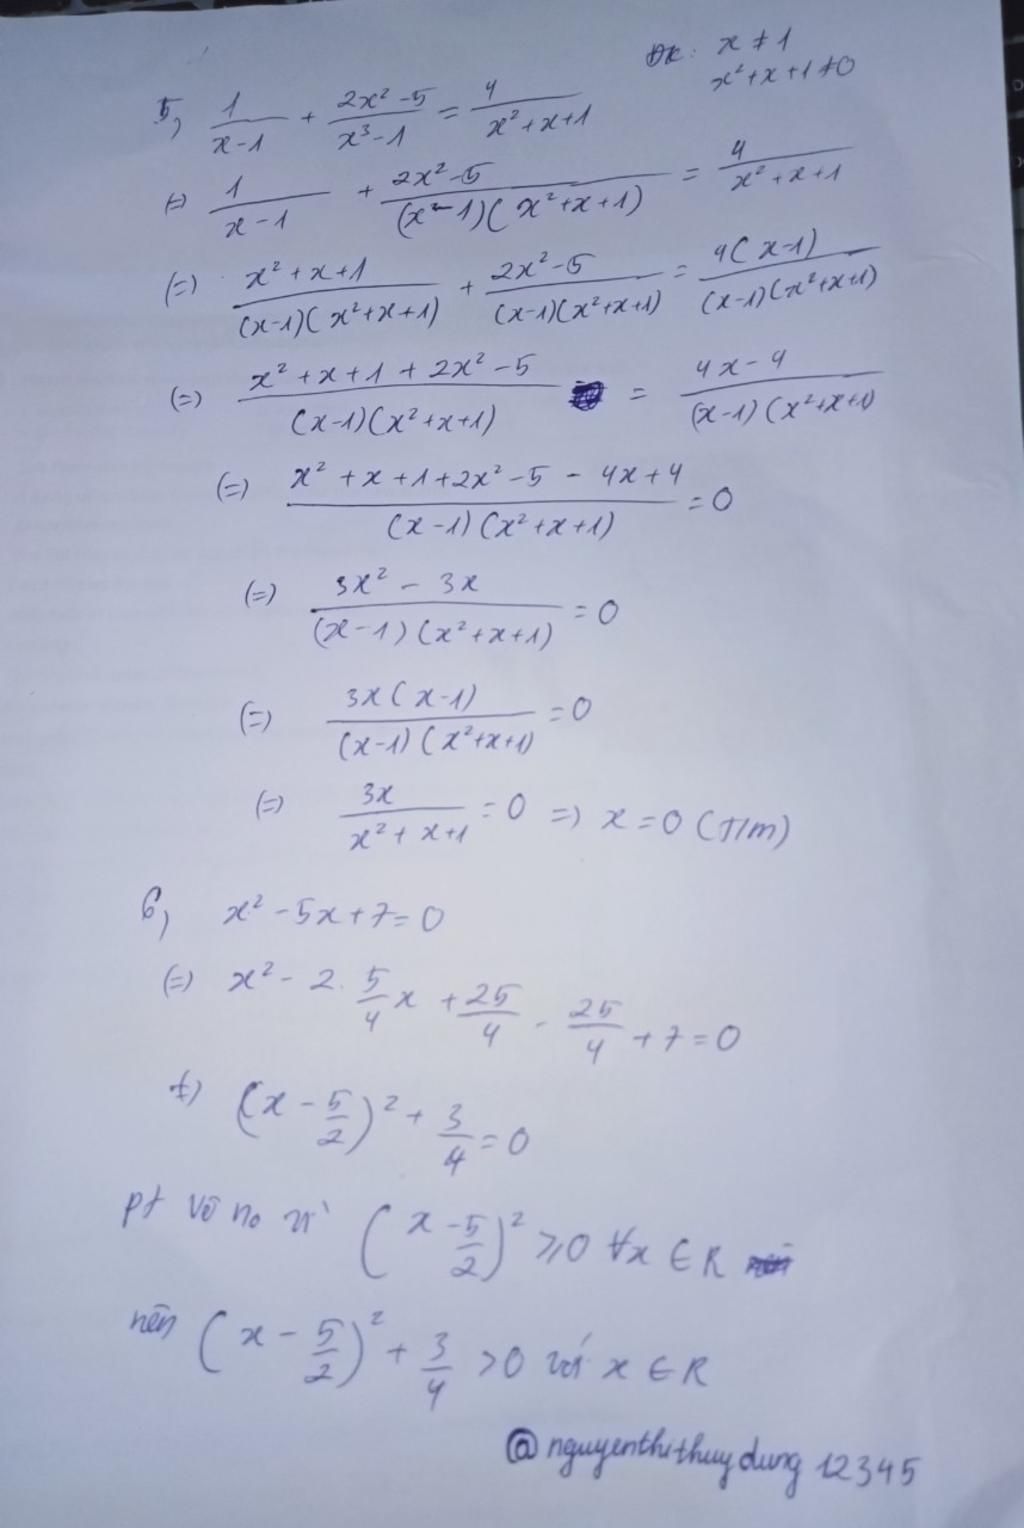 5, 1/(x-1) + (2x² -5)/(x³-1) = 4/(x²+x+1) ĐK: x ≠ 1
x²+x+1≠0
(=) 1/(x-1) + (2x²-5)/((x-1)(x²+x+1)) = 4/(x²+x+1)
(=) (x²+x+1)/((x-1)(x²+x+1)) + (2x²-5)/((x-1)(x²+x+1)) = 4(x-1)/((x-1)(x²+x+1))
(=) (x²+x+1+2x²-5)/((x-1)(x²+x+1)) = (4x-4)/((x-1)(x²+x+1))
(=) (x²+x+1+2x²-5-4x+4)/((x-1)(x²+x+1)) = 0
(=) (3x²-3x)/((x-1)(x²+x+1)) = 0
(=) 3x(x-1)/((x-1)(x²+x+1)) = 0
(=) 3x/(x²+x+1) = 0 => x=0 (T/m)
6, x²-5x+7=0
(=) x²-2.5/4x+25/4-25/4+7=0
(x-5/2)²+3/4=0
pt vô no vì (x-5/2)² ≥0 ∀x ∈ R
nên (x-5/2)²+3/4 >0 với x ∈ R
@nguyenthithuydung 12345